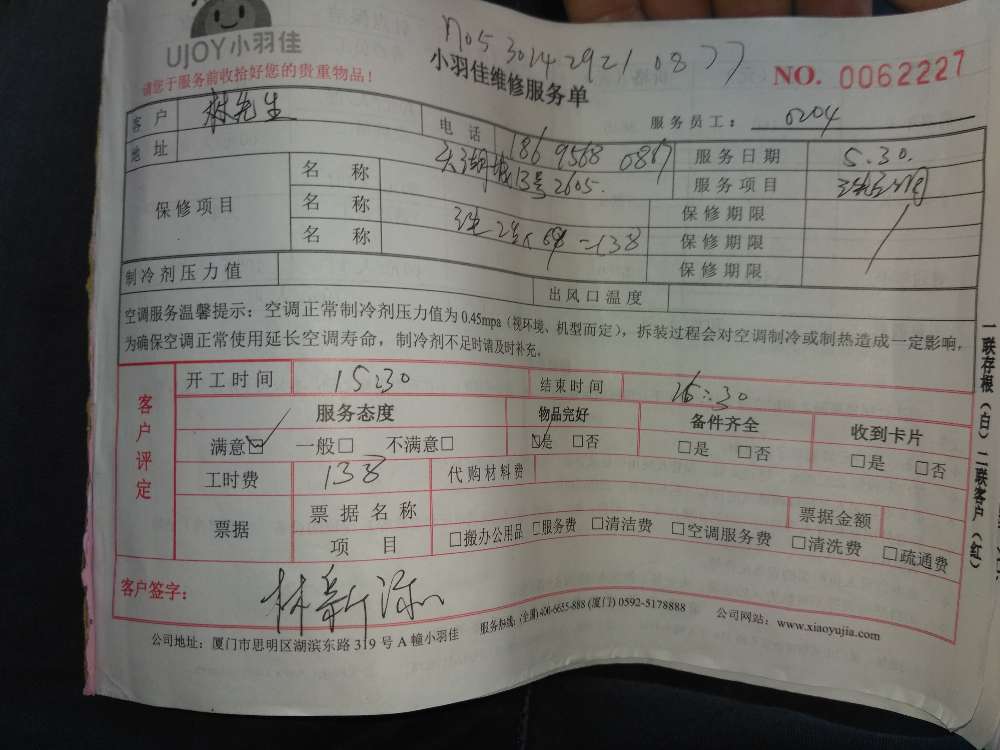 UJOY小羽佳
n053014292108 77
请您于服务前收拾好您的贵重物品！
小羽佳维修服务单
NO. 0062227
客户 林先生 电话 186 9568 0867
服务员工： 0204
地址 13号2605. 服务日期 5.30.
保修项目 名称 服务项目
名称 保修期限
名称 =138 保修期限
保修期限
制冷剂压力值 出风口温度
空调服务温馨提示：空调正常制冷剂压力值为0.45mpa（视环境、机型而定），拆装过程会对空调制冷或制热造成一定影响，
为确保空调正常使用延长空调寿命，制冷剂不足时请及时补充。
客户评定
开工时间 15:30 结束时间 16:30
服务态度 物品完好 备件齐全 收到卡片
满意☑ 一般□ 不满意□ ☑是 □否 □是 □否 □是 □否
工时费 138 代购材料费
票据 票据名称 票据金额
项目 □搬办公用品 □服务费 □清洁费 □空调服务费 □清洗费 □疏通费
客户签字： 林新
公司地址：厦门市思明区湖滨东路319号A幢小羽佳 服务热线：(全国) 400-6655-888 (厦门) 0592-5178888 公司网站：www.xiaoyujia.com
一联存根（白）二联客户（红）